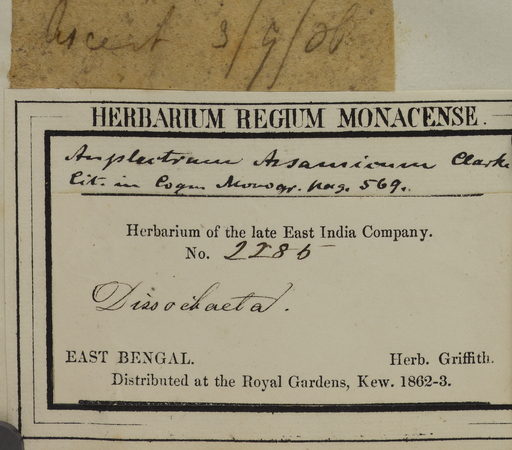 Ascent 3/9/36
HERBARIUM REGIUM MONACENSE.
Anplectrum Assamicum Clarke
Cit. in Cogn. Monogr. pag. 569.
Herbarium of the late East India Company.
No. 2285
Dissochaeta.
EAST BENGAL. Herb. Griffith.
Distributed at the Royal Gardens, Kew. 1862-3.